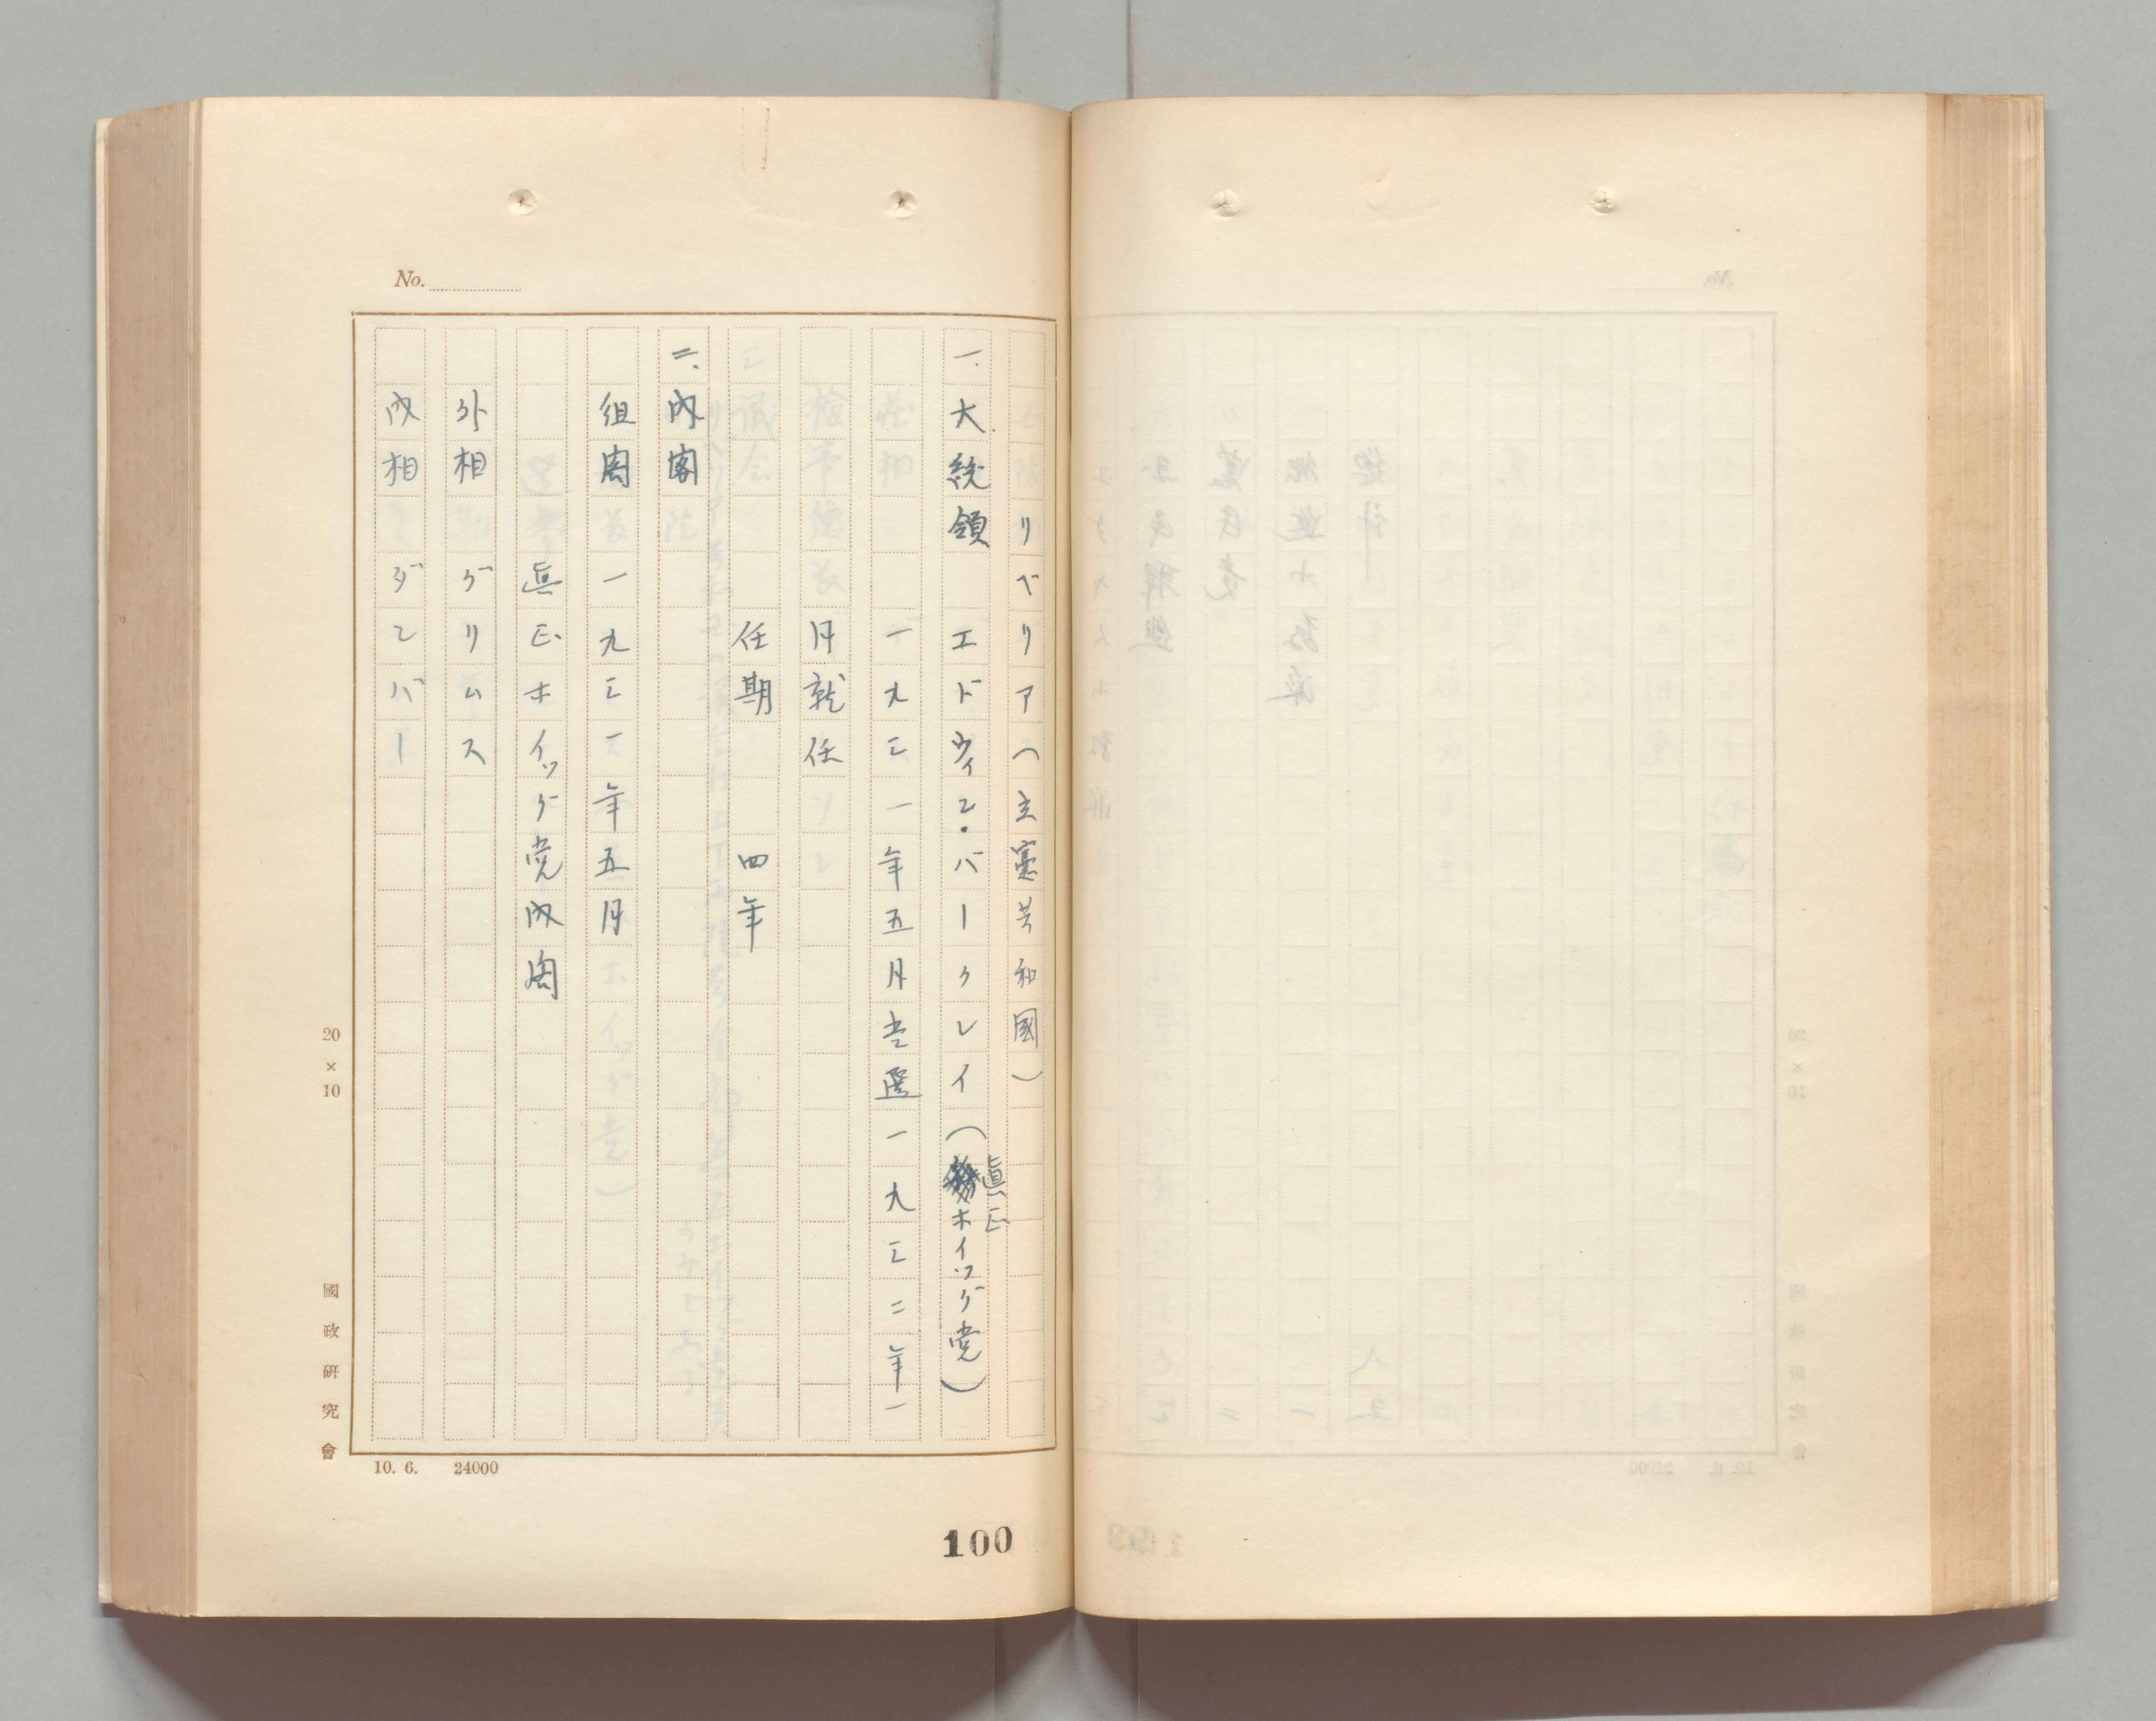 No.
リベリア（立憲共和國）
一、大統領 エドウィン・バークレイ（眞正ホイッグ党）
一九三一年五月当選一九三二年一
月就任
任期 四年
二、内閣
組閣 一九三一年五月
眞正ホイッグ党内閣
外相 グリムス
内相 ダンバー
20×10
國政研究會
10. 6. 24000
100